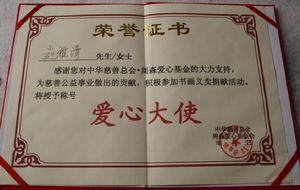 荣誉证书
先生/女士
感谢您对中华慈善总会·周森爱心基金的大力支持，
为慈善公益事业做出的贡献，积极参加书画义卖捐献活动。
将授予称号
爱心大使
中华慈善总会
周森爱心基金会